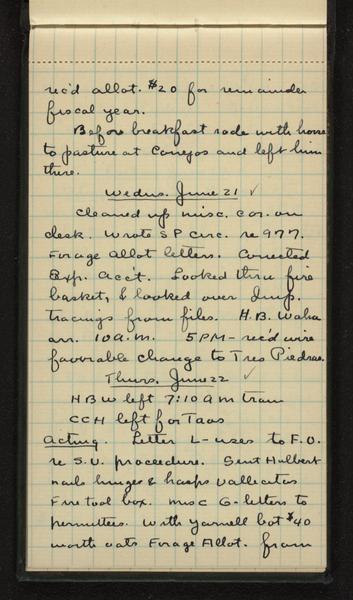 rec'd allot. $20 for remainder
fiscal year.
Before breakfast rode with horse
to pasture at Conejos and left him
there.
Wednes. June 21 ✓
Cleaned up misc. cor. on
desk. Wrote S P circ. re 977.
Forage allot letters. Corrected
Exp. Acc't. Looked thru fire
basket, & looked over Imp.
tracings from files. H.B. Waha
arr. 10 a.m. 5 PM - rec'd wire
favorable change to Tres Piedras.
Thurs. June 22 ✓
H B W left 7:10 a m train
CCH left for Taos
Acting. Letter L-uses to F.O.
re S.U. proceedure. Sent Hulbert
nails hinges & hasps Vallecitos
Fire tool box. misc G-letters to
permittees. With Yarnell bot $40
worth oats Forage Allot. from